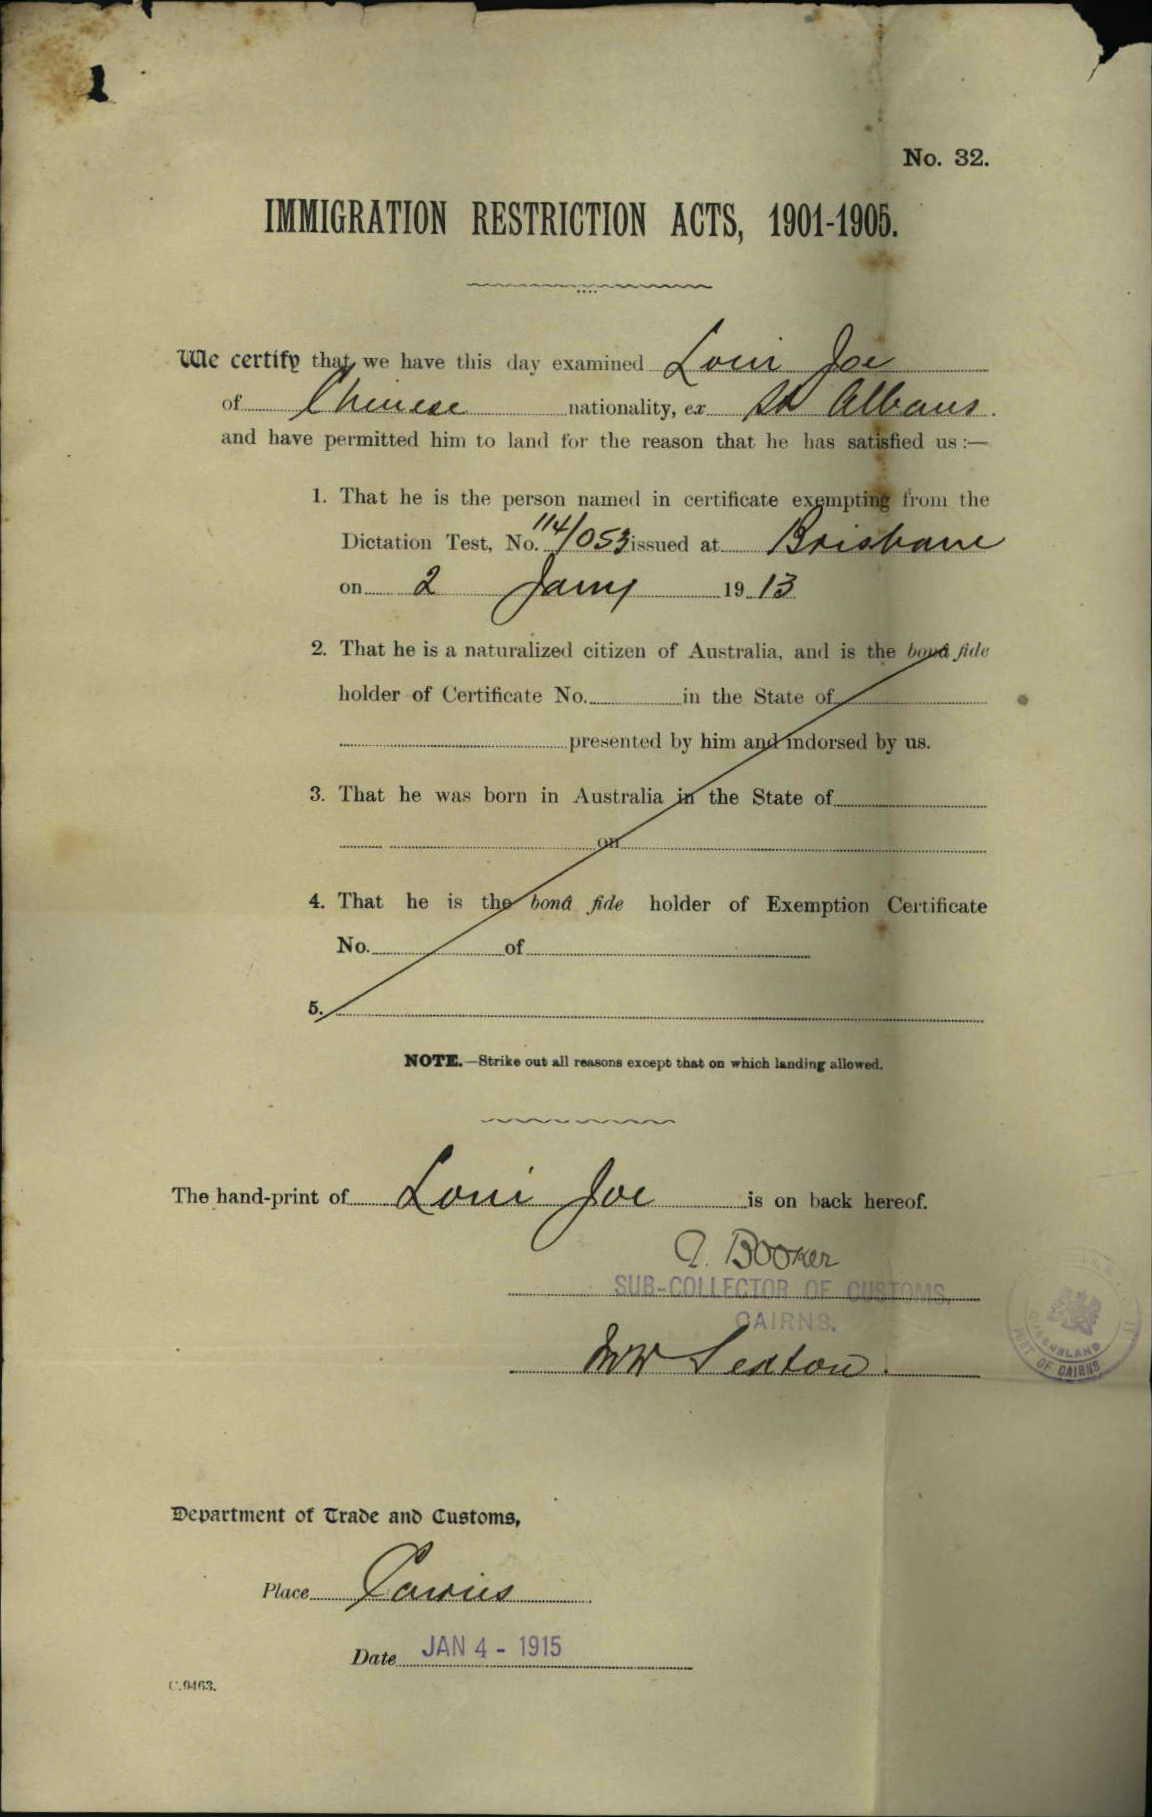 No. 32.
IMMIGRATION RESTRICTION ACTS, 1901-1905.
We certify that we have this day examined Loui Joe
of Chinese nationality, ex St Albans.
and have permitted him to land for the reason that he has satisfied us :—
1. That he is the person named in certificate exempting from the
Dictation Test, No. 114/053 issued at Brisbane
on 2 Jany 1913
2. That he is a naturalized citizen of Australia, and is the bonâ fide
holder of Certificate No. in the State of
presented by him and indorsed by us.
3. That he was born in Australia in the State of
on
4. That he is the bonâ fide holder of Exemption Certificate
No. of
5.
NOTE.—Strike out all reasons except that on which landing allowed.
The hand-print of Loui Joe is on back hereof.
Booker
SUB-COLLECTOR OF CUSTOMS,
CAIRNS.
Sexton.
QUEENSLAND
PORT OF CAIRNS
Department of Trade and Customs,
Place Cairns
Date JAN 4 - 1915
C.9463.